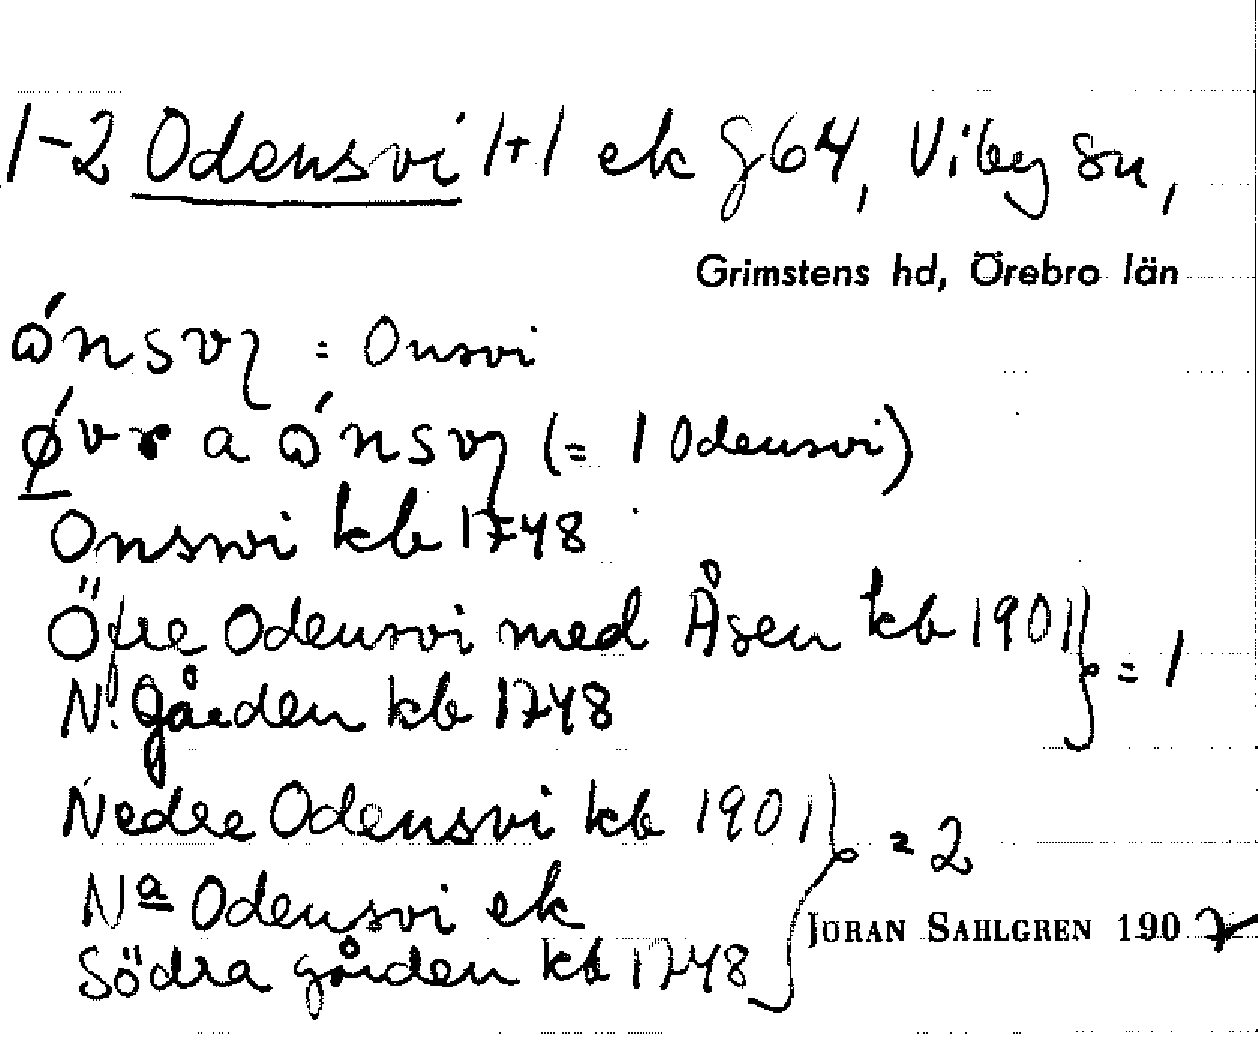 1-2 Odensvi 1+1 ek g64, Viby sn,
Grimstens hd, Örebro län
= Onsvi
(= 1 Odensvi)
Onswi kb 1748
Öfre Odensvi med Åsen kb 1901 } = 1
N. gården kb 1748
Nedre Odensvi kb 1901 } = 2
Na Odensvi ek
JÖRAN SAHLGREN 1907
Södra gården kb 1748